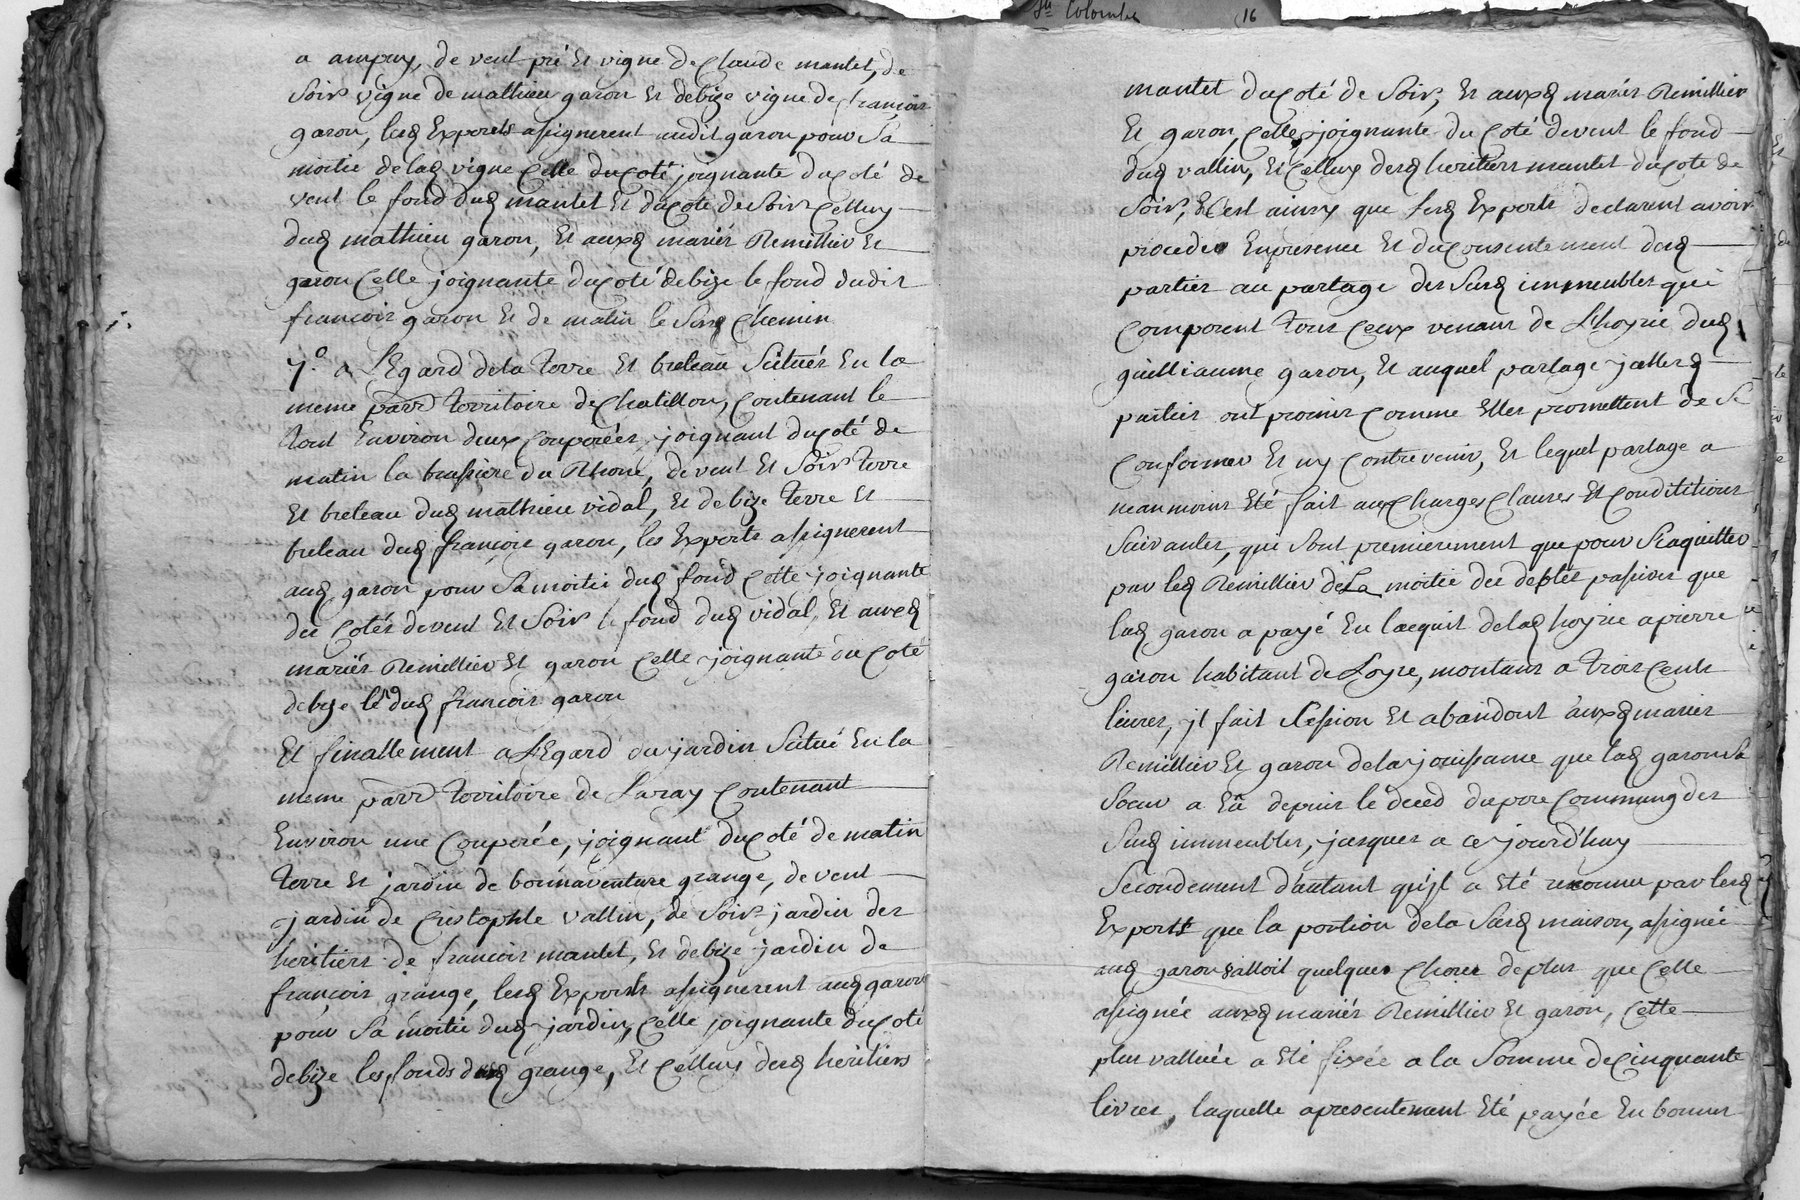 Ste Colombe 16
a ampuy, de vent pré Et vigne de Claude mantet, de
Soir vigne de mathieu garon Et de bize vigne de françois
garon, lesd Experts assignerent audit garon pour Sa
moitié de lad vigne Celle du coté joignante du coté de
vent le fond dud mantet Et du coté de Soir Celluy
dud mathieu garon, Et auxd mariés Remillier Et
garon Celle joignante du coté de bize le fond dudit
françois garon Et de matin le Susd Chemin
7.° a L'Egard de la Terre Et breteau Scitués En la
meme parr Territoire de Chatillon, Contenant le
tout Environ deux Couperées, joignant du coté de
matin la brassiere du Rhone, de vent Et Soir Terre
Et breteau dud mathieu vidal, Et de bize Terre Et
breteau dud françois garon, les Experts assignerent
aud garon pour Sa moitié dud fond Celle joignante
des Cotés de vent Et Soir le fond dud vidal, Et auxd
mariés Remillier Et garon Celle joignante du Coté
de bize le dud françois garon
Et finallement a L'Egard du jardin Scitué En la
meme parr Territoire de Laray Contenant
Environ une Couperée, joignant du coté de matin
Terre Et jardin de bonnaventure grange, de vent
jardin de Cristophle vallin, de Soir jardin des
héritiers de françois mantet, Et de bize jardin de
françois grange, lesd Experts assignerent aud garon
pour Sa moitié dud jardin, Celle joignante du coté
de bize les fonds dud grange, Et Celluy desd héritiers
mantet du coté de Soir, Et auxd mariés Remillier
Et garon, Celle joignante du Coté de vent le fond
dud vallin, Et Celluy desd heritiers mantet du coté de
Soir, Et C'est ainsy que lesd Experts declarent avoir
procedé En presence Et du Consentement desd
parties au partage des Susd immeubles qui
Composent tous Ceux venans de L'hoyrie dud
guilliaume garon, Et auquel partage jcelles
parties ont promis Comme Elles promettent de Se
Conformer Et n'y Contrevenir, Et lequel partage a
neanmoins Eté fait aux Charges Clauses Et Condititions
Suivantes, qui Sont premierement que pour S'aquitter
par led Remillier de La moitié des debtes passives que
led garon a payé En l'acquit de lad hoyrie a pierre
garon habitant de Loyre, montans a Trois Cents
livres, jl fait Cession Et abandont auxd mariés
Remillier Et garon de la jouissance que lad garon Sa
Soeur a Eû depuis le deced du pere Commung des
Susd immeubles, jusques a ce jourd'huy
Secondement d'autant qu'jl a Eté reconnu par lesd
Experts que la portion de la Susd maison, assignée
aud garon valloit quelques Choses de plus que Celle
assignée auxd mariés Remillier Et garon, Cette
plus valluée a Eté fixée a la Somme de Cinquante
livres, laquelle a presentement Eté payée En bonnes